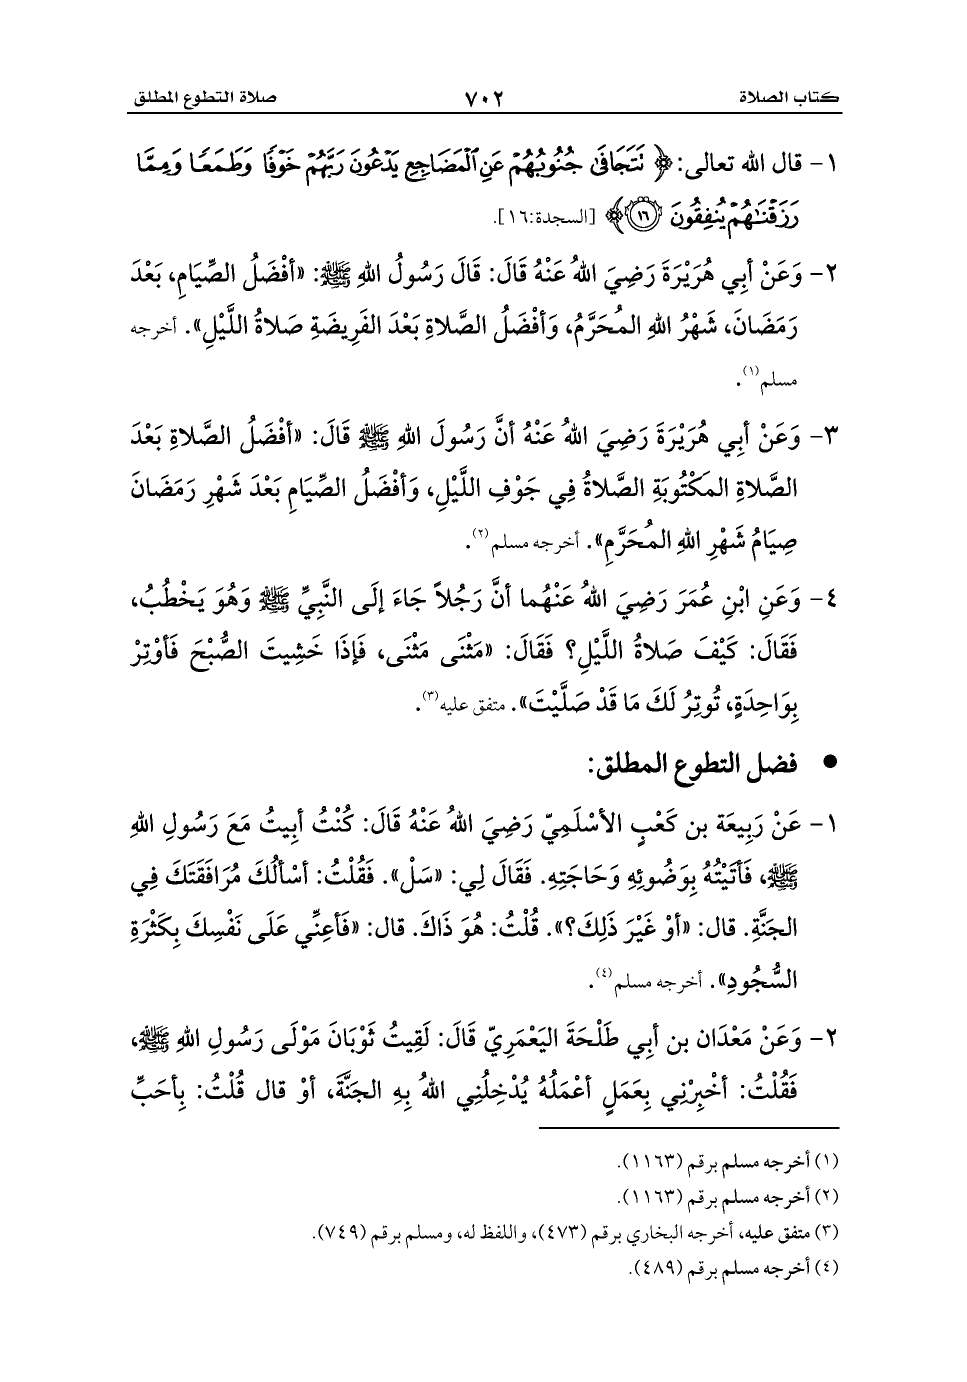 كتاب الصلاة ٧٠٢ صلاة التطوع المطلق
١- قال الله تعالى: ﴿ نَتَجَافَىٰ جُنُوبُهُمْ عَنِ ٱلْمَضَاجِعِ يَدْعُونَ رَبَّهُمْ خَوْفًا وَطَمَعًا وَمِمَّا
رَزَقْنَـٰهُمْ يُنفِقُونَ ١٦ ﴾ [السجدة:١٦].
٢- وَعَنْ أبِي هُرَيْرَةَ رَضِيَ اللهُ عَنْهُ قَالَ: قَالَ رَسُولُ اللهِ ﷺ: «أفْضَلُ الصِّيَامِ، بَعْدَ
رَمَضَانَ، شَهْرُ اللهِ المُحَرَّمُ، وَأفْضَلُ الصَّلاةِ بَعْدَ الفَرِيضَةِ صَلاةُ اللَّيْلِ». أخرجه
مسلم(١).
٣- وَعَنْ أبِي هُرَيْرَةَ رَضِيَ اللهُ عَنْهُ أنَّ رَسُولَ اللهِ ﷺ قَالَ: «أفْضَلُ الصَّلاةِ بَعْدَ
الصَّلاةِ المَكْتُوبَةِ الصَّلاةُ فِي جَوْفِ اللَّيْلِ، وَأفْضَلُ الصِّيَامِ بَعْدَ شَهْرِ رَمَضَانَ
صِيَامُ شَهْرِ اللهِ المُحَرَّمِ». أخرجه مسلم(٢).
٤- وَعَنِ ابْنِ عُمَرَ رَضِيَ اللهُ عَنْهُما أنَّ رَجُلاً جَاءَ إلَى النَّبِيِّ ﷺ وَهُوَ يَخْطُبُ،
فَقَالَ: كَيْفَ صَلاةُ اللَّيْلِ؟ فَقَالَ: «مَثْنَى مَثْنَى، فَإذَا خَشِيتَ الصُّبْحَ فَأوْتِرْ
بِوَاحِدَةٍ، تُوتِرُ لَكَ مَا قَدْ صَلَّيْتَ». متفق عليه(٣).
● فضل التطوع المطلق:
١- عَنْ رَبِيعَة بن كَعْبٍ الأسْلَمِيّ رَضِيَ اللهُ عَنْهُ قَالَ: كُنْتُ أبِيتُ مَعَ رَسُولِ اللهِ
ﷺ، فَأتَيْتُهُ بِوَضُوئِهِ وَحَاجَتِهِ. فَقَالَ لِي: «سَلْ». فَقُلْتُ: أسْألُكَ مُرَافَقَتَكَ فِي
الجَنَّةِ. قال: «أوْ غَيْرَ ذَلِكَ؟». قُلْتُ: هُوَ ذَاكَ. قال: «فَأعِنِّي عَلَى نَفْسِكَ بِكَثْرَةِ
السُّجُودِ». أخرجه مسلم(٤).
٢- وَعَنْ مَعْدَان بن أبِي طَلْحَةَ اليَعْمَرِيّ قَالَ: لَقِيتُ ثَوْبَانَ مَوْلَى رَسُولِ اللهِ ﷺ،
فَقُلْتُ: أخْبِرْنِي بِعَمَلٍ أعْمَلُهُ يُدْخِلُنِي اللهُ بِهِ الجَنَّةَ، أوْ قال قُلْتُ: بِأحَبِّ
(١) أخرجه مسلم برقم (١١٦٣).
(٢) أخرجه مسلم برقم (١١٦٣).
(٣) متفق عليه، أخرجه البخاري برقم (٤٧٣)، واللفظ له، ومسلم برقم (٧٤٩).
(٤) أخرجه مسلم برقم (٤٨٩).